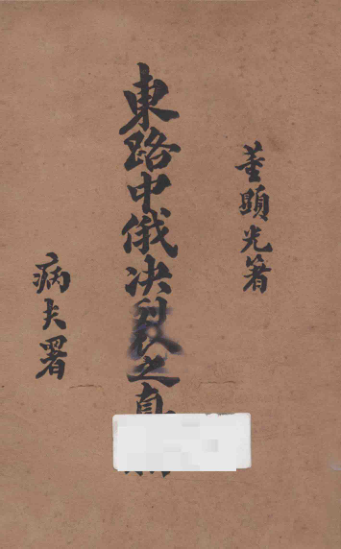 董顯光著
東路中俄决裂之真
病夫署